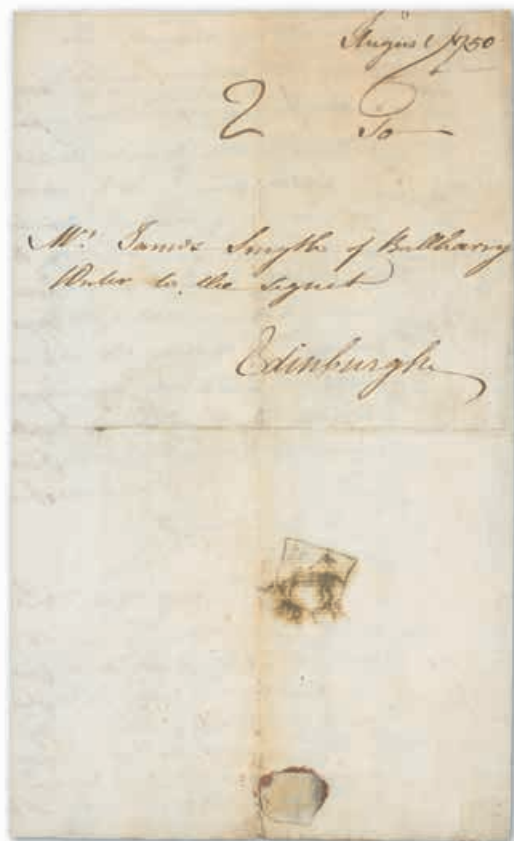 August 1750
2 To
Mr. James Smyth of Balharry
Writer to the signet
Edinburgh